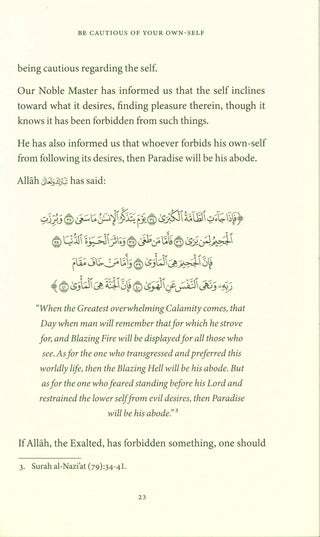 BE CAUTIOUS OF YOUR OWN-SELF
being cautious regarding the self.
Our Noble Master has informed us that the self inclines
toward what it desires, finding pleasure therein, though it
knows it has been forbidden from such things.
He has also informed us that whoever forbids his own-self
from following its desires, then Paradise will be his abode.
Allāh تَبَارَكَوَتَعَالَى has said:
﴿فَإِذَا جَاءَتِ الطَّامَّةُ الْكُبْرَىٰ ۝٣٤ يَوْمَ يَتَذَكَّرُ الْإِنسَٰنُ مَا سَعَىٰ ۝٣٥ وَبُرِّزَتِ
الْجَحِيمُ لِمَن يَرَىٰ ۝٣٦ فَأَمَّا مَن طَغَىٰ ۝٣٧ وَءَاثَرَ الْحَيَوٰةَ الدُّنْيَا ۝٣٨
فَإِنَّ الْجَحِيمَ هِيَ الْمَأْوَىٰ ۝٣٩ وَأَمَّا مَنْ خَافَ مَقَامَ
رَبِّهِ وَنَهَى النَّفْسَ عَنِ الْهَوَىٰ ۝٤٠ فَإِنَّ الْجَنَّةَ هِيَ الْمَأْوَىٰ ۝٤١﴾
"When the Greatest overwhelming Calamity comes, that
Day when man will remember that for which he strove
for, and Blazing Fire will be displayed for all those who
see. As for the one who transgressed and preferred this
worldly life, then the Blazing Hell will be his abode. But
as for the one who feared standing before his Lord and
restrained the lower self from evil desires, then Paradise
will be his abode."3
If Allāh, the Exalted, has forbidden something, one should
3. Surah al-Nazi'at (79):34-41.
23